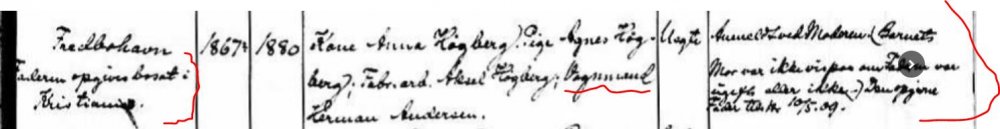 Fredbohavn
Faderen opgives bosat i
Kristiania.
1867 1880
Kone Anna Högberg; Pige Agnes Hög-
berg; Fabr.arb. Aksel Högberg; Vognmand
Herman Andersen.
Uegte
Anmeldt ved Moderen (Barnets
Mor var ikke vis paa om Faderen var
ugift eller ikke.) Den opgivne
Fader 10/5.09.